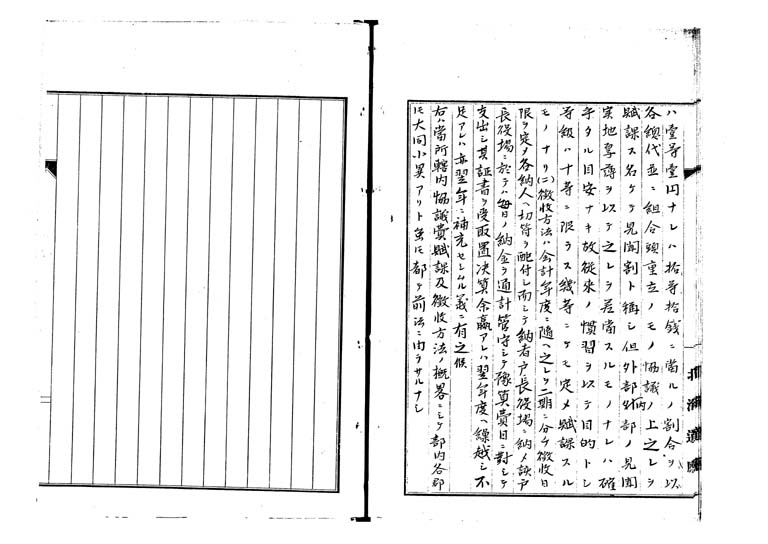 ハ壹等壹円ナレハ拾等拾銭ニ當ルノ割合ヲ以
各總代並ニ組合頭重立ノモノ協議ノ上之レヲ
賦課ス名ケテ見聞割ト稱シ但外部財部ノ見聞
実地等ヲ以テ之レヲ差當スルモノナレハ確
乎タル目安ナキ故従来ノ慣習ヲ以テ目的トシ
等級ハ十等ニ限ラス幾等ニケモ定メ賦課スル
モノナリ(二)徴收方法ハ会計年度ニ隨ヘ之レヲ二期ニ分ケ徴收日
限ヲ定メ各納人ヘ切符ヲ配付シ而シテ納者戸長役場ニ納メ該戸
長役場ニ於テハ毎日ノ納金ヲ通計管守シテ豫算費目ニ對シテ
支出シ其証書ヲ受取置決算余贏アレハ翌年度ヘ繰越シ不
足アレハ亦翌年ニ補充セシケル義ニ有之候
右ハ當所轄内協議費賦課及徴收方法ノ概畧ニシテ部内各郡
ニ大同小異アリト虽モ都テ前法ニ由ラサルナシ